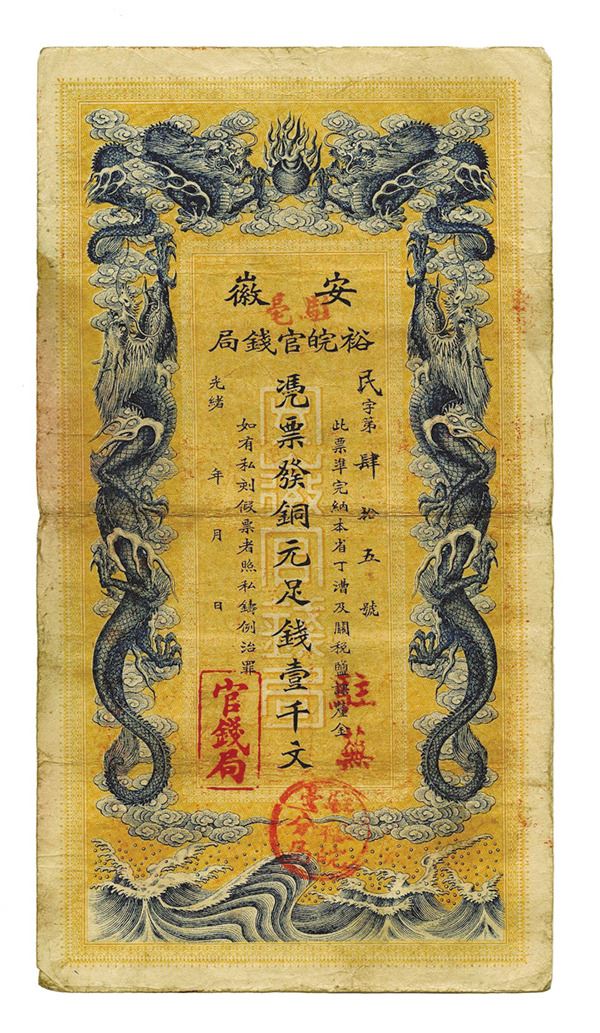 安徽
駐亳
裕皖官錢局
民字第肆拾五號
此票準完納本省丁漕及關稅鹽課釐金
憑票發銅元足錢壹千文
如有私刻假票者照私鑄例治罪
光緒 年 月 日
駐蕪
官錢局